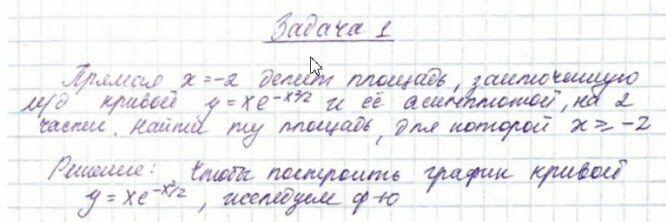 Задача 1
Прямая x=-2 делит площадь, заключенную
м/д кривой y=xe^{-x²/2} и её асимптотой, на 2
части. Найти ту площадь, для которой x ≥ -2
Решение: Чтобы построить график кривой
y=xe^{-x²/2}, исследуем ф-ю